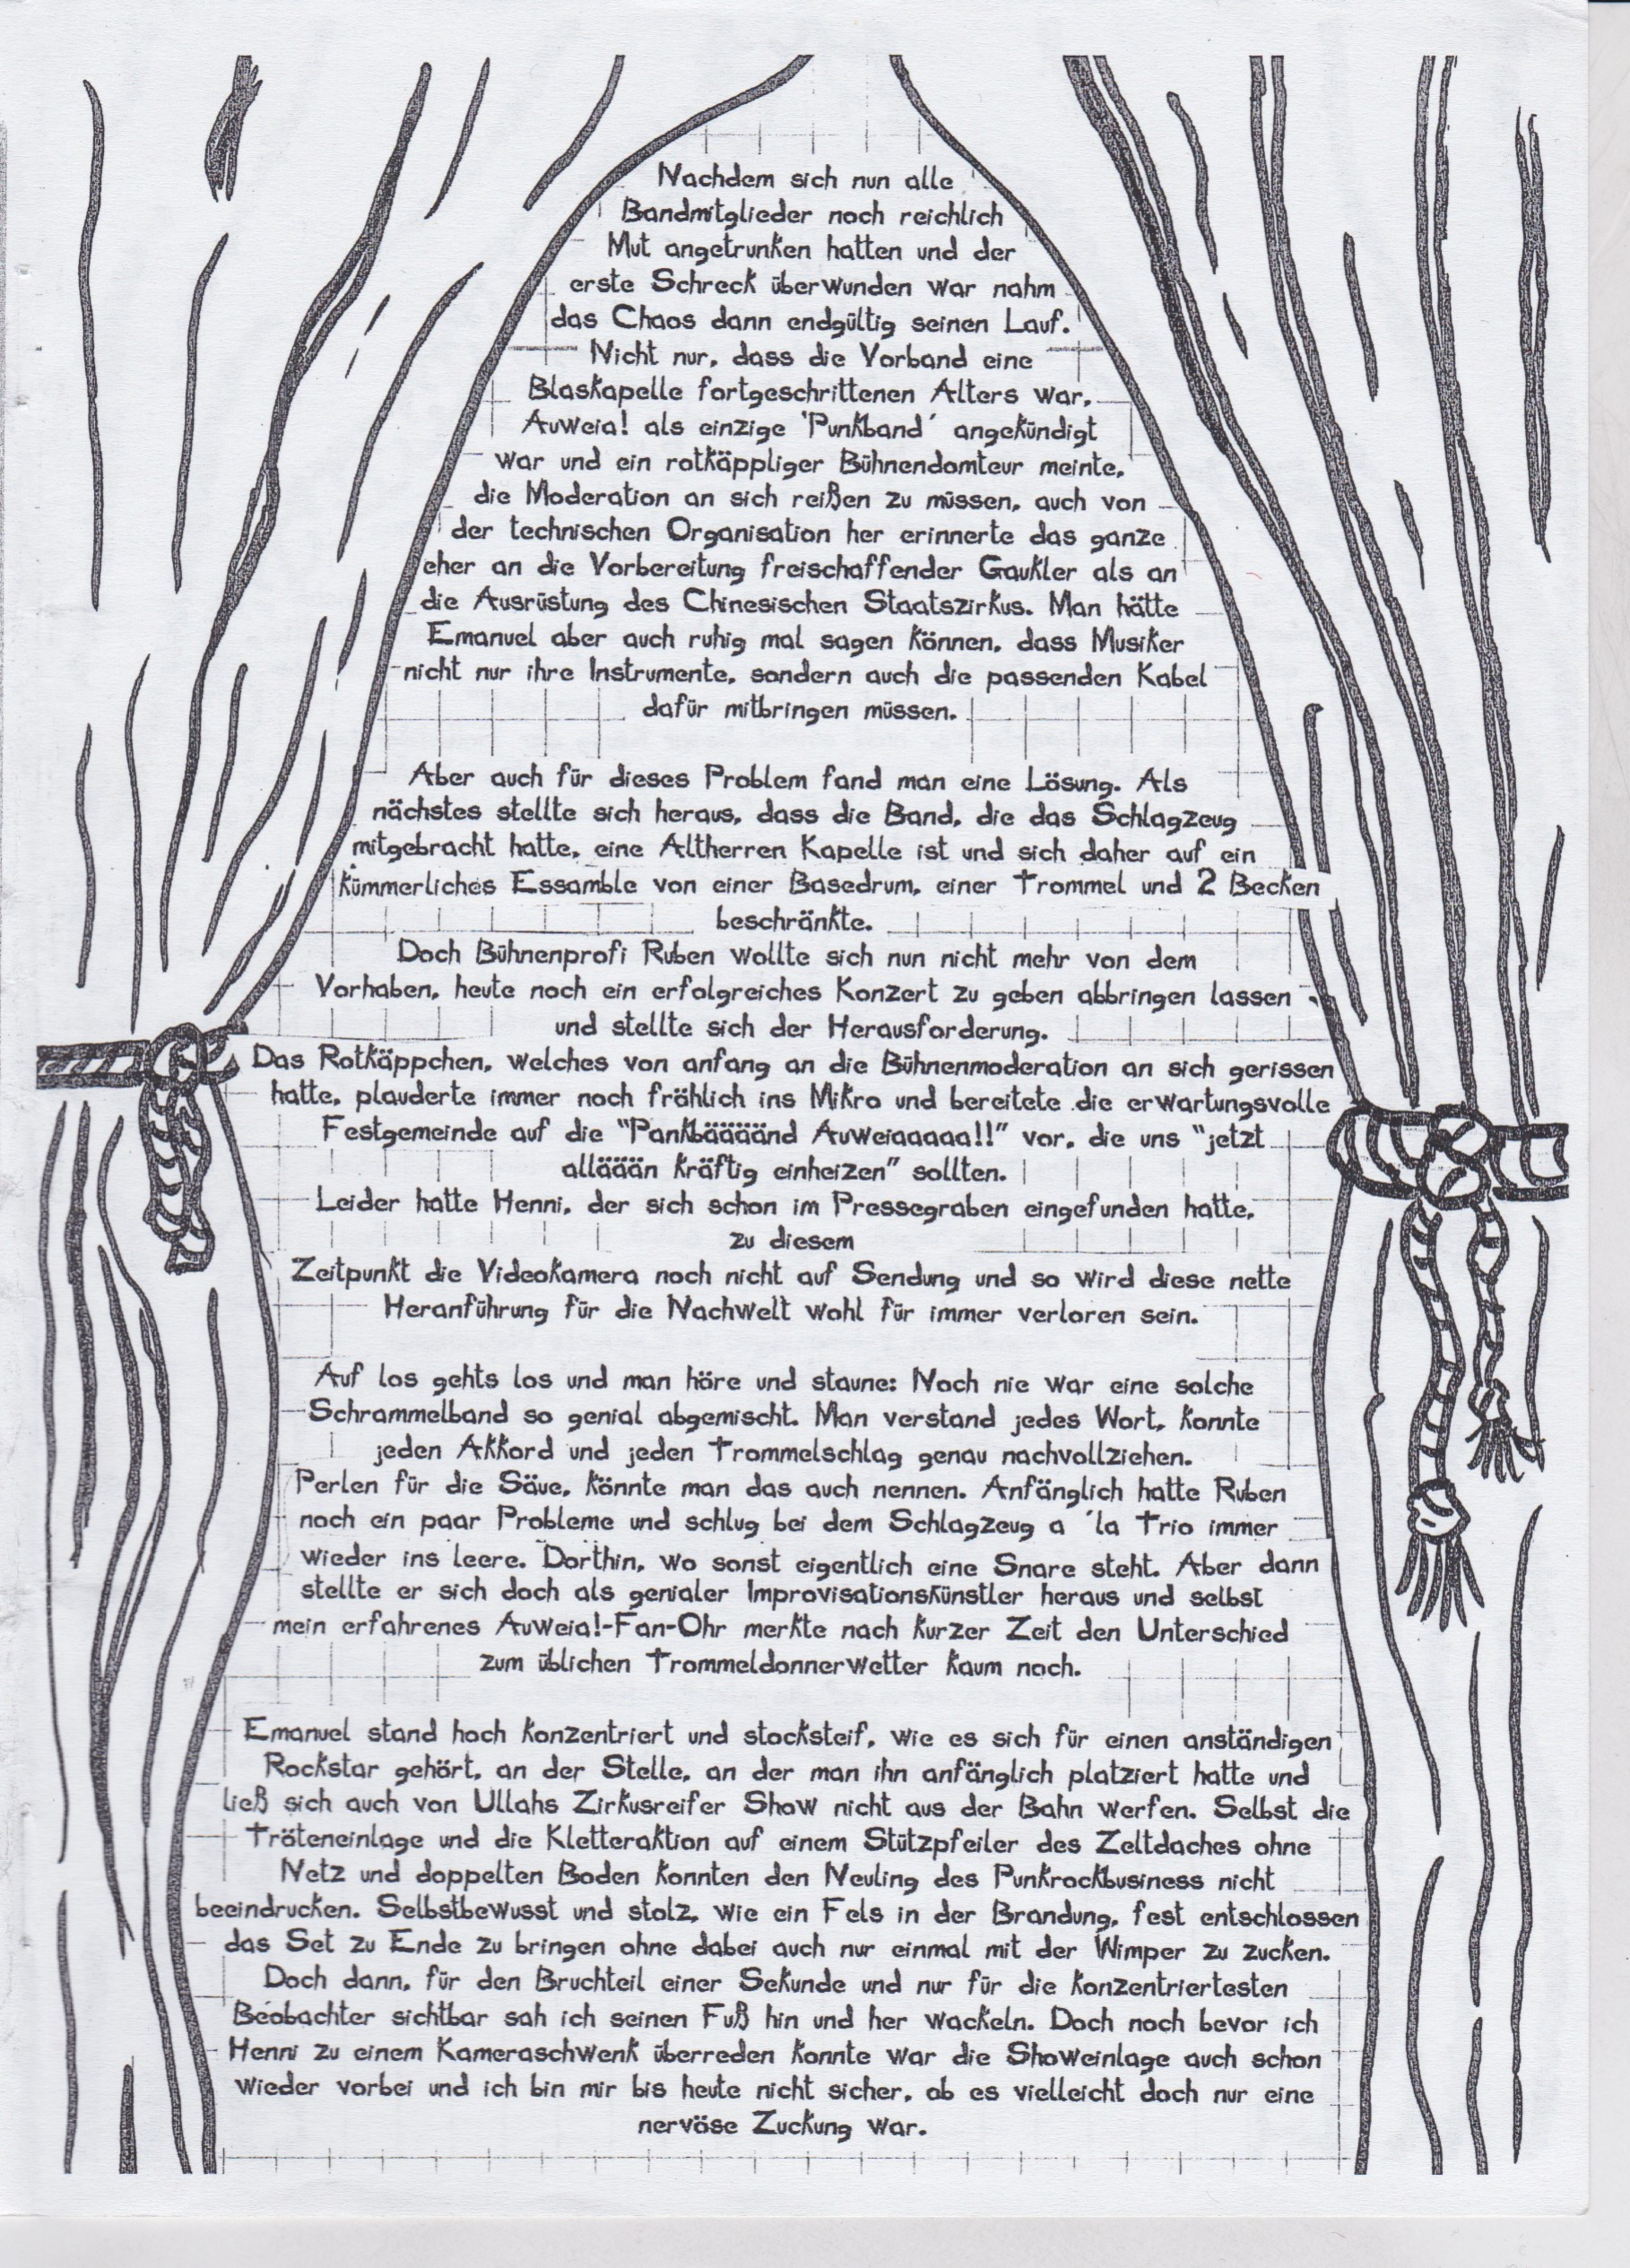 Nachdem sich nun alle
Bandmitglieder noch reichlich
Mut angetrunken hatten und der
erste Schreck überwunden war nahm
das Chaos dann endgültig seinen Lauf.
Nicht nur, dass die Vorband eine
Blaskapelle fortgeschrittenen Alters war,
Auweia! als einzige 'Punkband´ angekündigt
war und ein rotkäppliger Bühnendomteur meinte,
die Moderation an sich reißen zu müssen, auch von
der technischen Organisation her erinnerte das ganze
eher an die Vorbereitung freischaffender Gaukler als an
die Ausrüstung des Chinesischen Staatszirkus. Man hätte
Emanuel aber auch ruhig mal sagen können, dass Musiker
nicht nur ihre Instrumente, sondern auch die passenden Kabel
dafür mitbringen müssen.
Aber auch für dieses Problem fand man eine Lösung. Als
nächstes stellte sich heraus, dass die Band, die das Schlagzeug
mitgebracht hatte, eine Altherren Kapelle ist und sich daher auf ein
kümmerliches Essamble von einer Basedrum, einer Trommel und 2 Becken
beschränkte.
Doch Bühnenprofi Ruben wollte sich nun nicht mehr von dem
Vorhaben, heute noch ein erfolgreiches Konzert zu geben abbringen lassen
und stellte sich der Herausforderung.
Das Rotkäppchen, welches von anfang an die Bühnenmoderation an sich gerissen
hatte, plauderte immer noch fröhlich ins Mikro und bereitete die erwartungsvolle
Festgemeinde auf die "Pankbäääänd Auweiaaaaa!!" vor, die uns "jetzt
alläään kräftig einheizen" sollten.
Leider hatte Henni, der sich schon im Pressegraben eingefunden hatte,
zu diesem
Zeitpunkt die Videokamera noch nicht auf Sendung und so wird diese nette
Heranführung für die Nachwelt wohl für immer verloren sein.
Auf los gehts los und man höre und staune: Noch nie war eine solche
Schrammelband so genial abgemischt. Man verstand jedes Wort, konnte
jeden Akkord und jeden Trommelschlag genau nachvollziehen.
Perlen für die Säue, könnte man das auch nennen. Anfänglich hatte Ruben
noch ein paar Probleme und schlug bei dem Schlagzeug a ´la Trio immer
wieder ins leere. Dorthin, wo sonst eigentlich eine Snare steht. Aber dann
stellte er sich doch als genialer Improvisationskünstler heraus und selbst
mein erfahrenes Auweia!-Fan-Ohr merkte nach kurzer Zeit den Unterschied
zum üblichen Trommeldonnerwetter kaum noch.
Emanuel stand hoch konzentriert und stocksteif, wie es sich für einen anständigen
Rockstar gehört, an der Stelle, an der man ihn anfänglich platziert hatte und
ließ sich auch von Ullahs Zirkusreifer Show nicht aus der Bahn werfen. Selbst die
Tröteneinlage und die Kletteraktion auf einem Stützpfeiler des Zeltdaches ohne
Netz und doppelten Boden konnten den Neuling des Punkrockbusiness nicht
beeindrucken. Selbstbewusst und stolz, wie ein Fels in der Brandung, fest entschlossen
das Set zu Ende zu bringen ohne dabei auch nur einmal mit der Wimper zu zucken.
Doch dann, für den Bruchteil einer Sekunde und nur für die konzentriertesten
Beobachter sichtbar sah ich seinen Fuß hin und her wackeln. Doch noch bevor ich
Henni zu einem Kameraschwenk überreden konnte war die Showeinlage auch schon
wieder vorbei und ich bin mir bis heute nicht sicher, ob es vielleicht doch nur eine
nervöse Zuckung war.